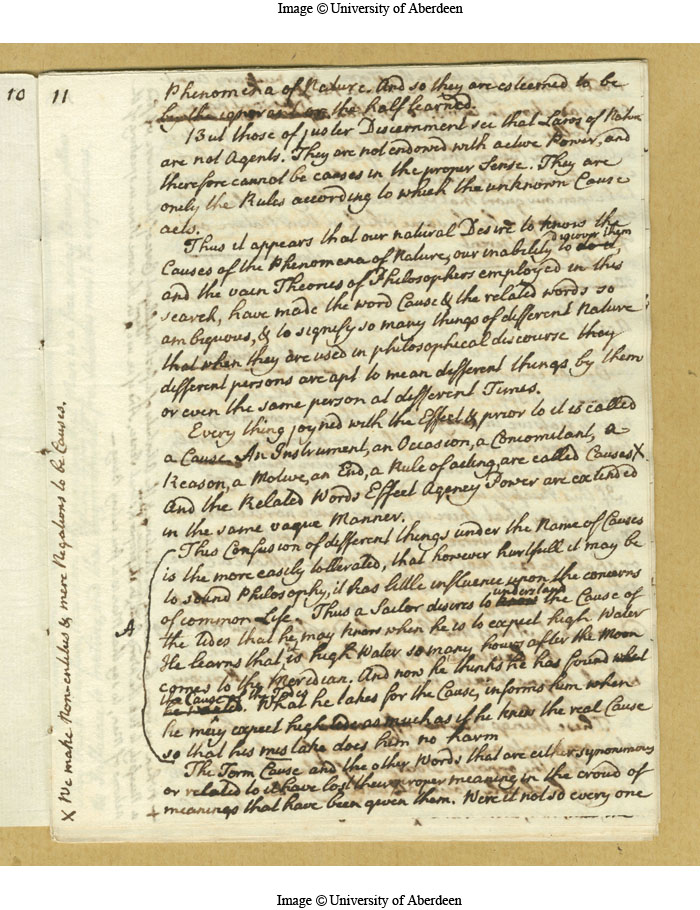 Image © University of Aberdeen
10
11
Phenomena of Nature. And so they are esteemed to be
by the ignorant & the half learned.
But those of juster Discernment see that Laws of Nature
are not Agents. They are not endowed with active Power, and
therefore cannot be causes in the proper Sense. They are
onely the Rules according to which the unknown Cause
acts.
Thus it appears that our natural Desire to know the
Causes of the Phenomena of Nature, our inability to do it, discover them
and the vain Theories of Philosophers employed in this
search, have made the word Cause & the related words so
ambiguous, & to signify so many things of different Nature
that when they are used in philosophical discourse they
different persons are apt to mean different things by them
or even the same person at different Times.
Every thing joyned with the Effect & prior to it is called
a Cause. An Instrument, an Occasion, a Concomitant, a
Reason, a Motive, an End, a Rule of acting, are called Causes X
And the Related Words Effect Agency Power are extended
in the same vague Manner.
This Confusion of different things under the Name of Causes
is the more easily tollerated, that however hurtfull it may be
to sound Philosophy, it has little influence upon the concerns
of common Life. Thus a Sailor desires to know understand the Cause of
the tides that he may know when he is to expect high Water
He learns that is high Water so many hours after the Moon
comes to the Meridian. And now he thinks he has found what
the Cause of the Tides
he wanted. What he takes for the Cause, informs him when
he may expect high tide as much as if he knew the real Cause
so that his mistake does him no harm
The Term Cause and the other Words that are either synonimous
or related to it have lost their proper meaning in the croud of
meanings that have been given them. Were it not so every one
A
X We make Non-entitus & mere Negations to be Causes.
Image © University of Aberdeen